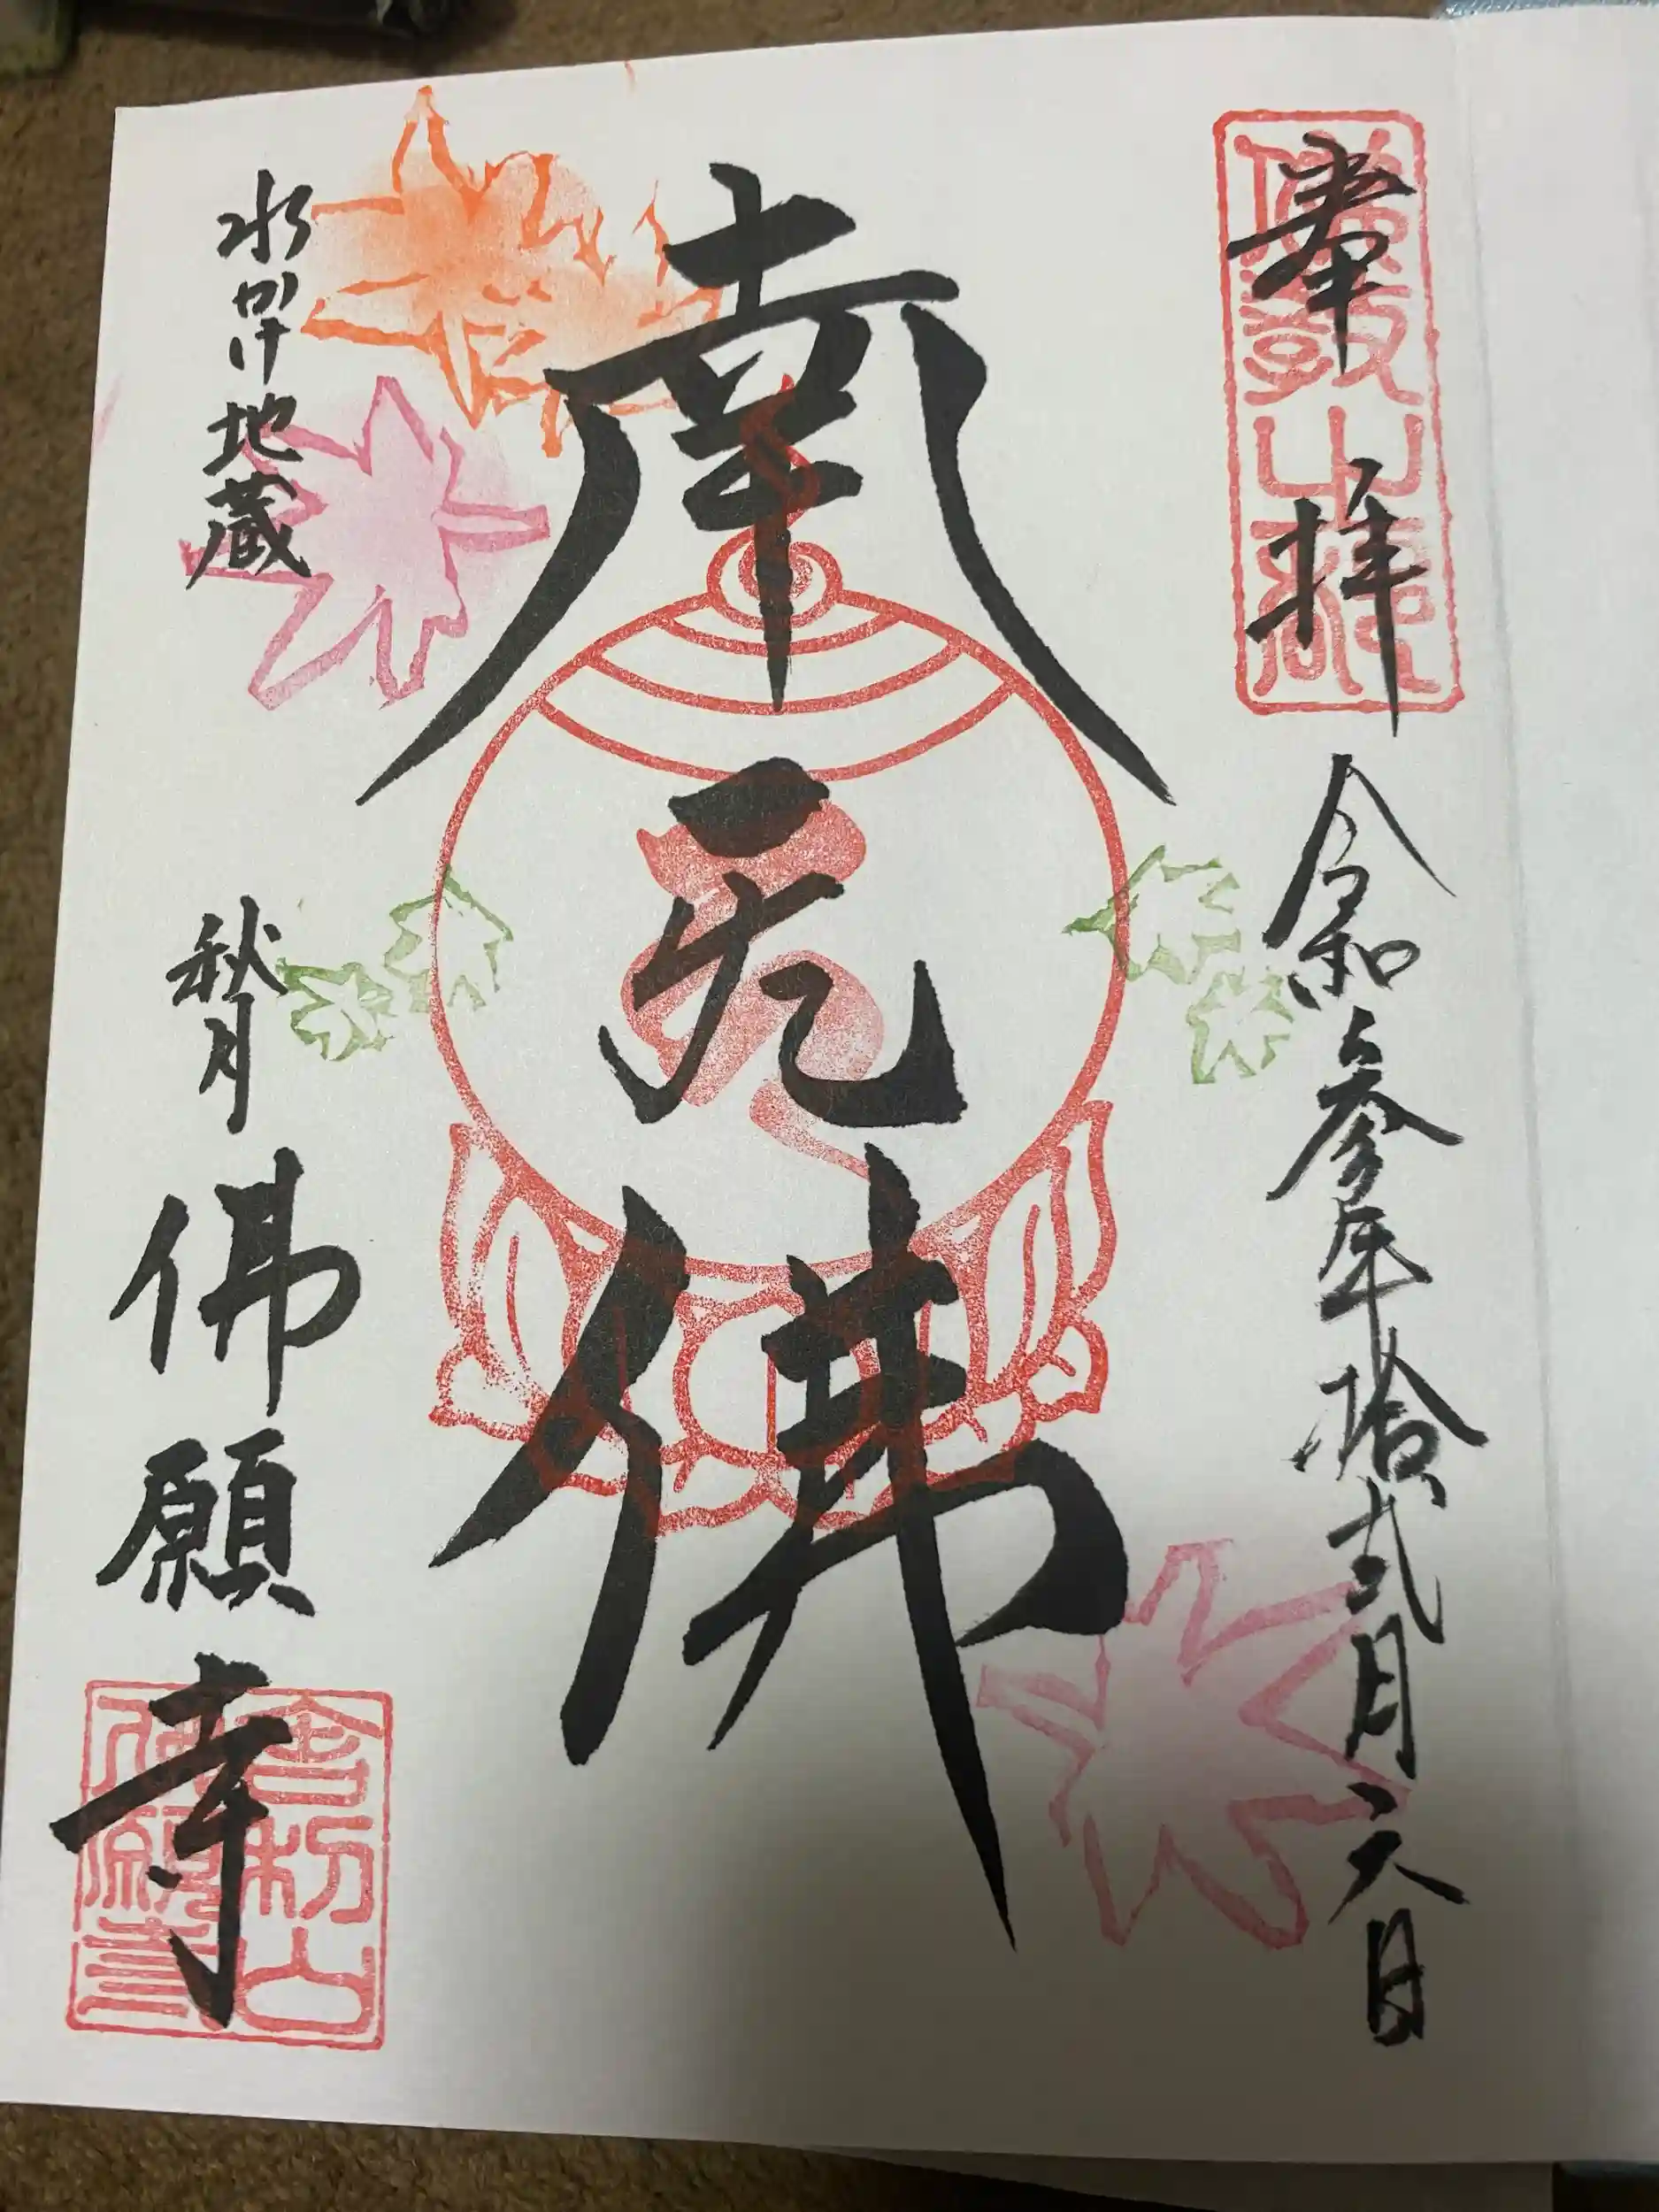 奉拝
令和参年拾弐月六日
南无佛
水かけ地蔵
秋月 佛願寺
舎利山
佛願寺